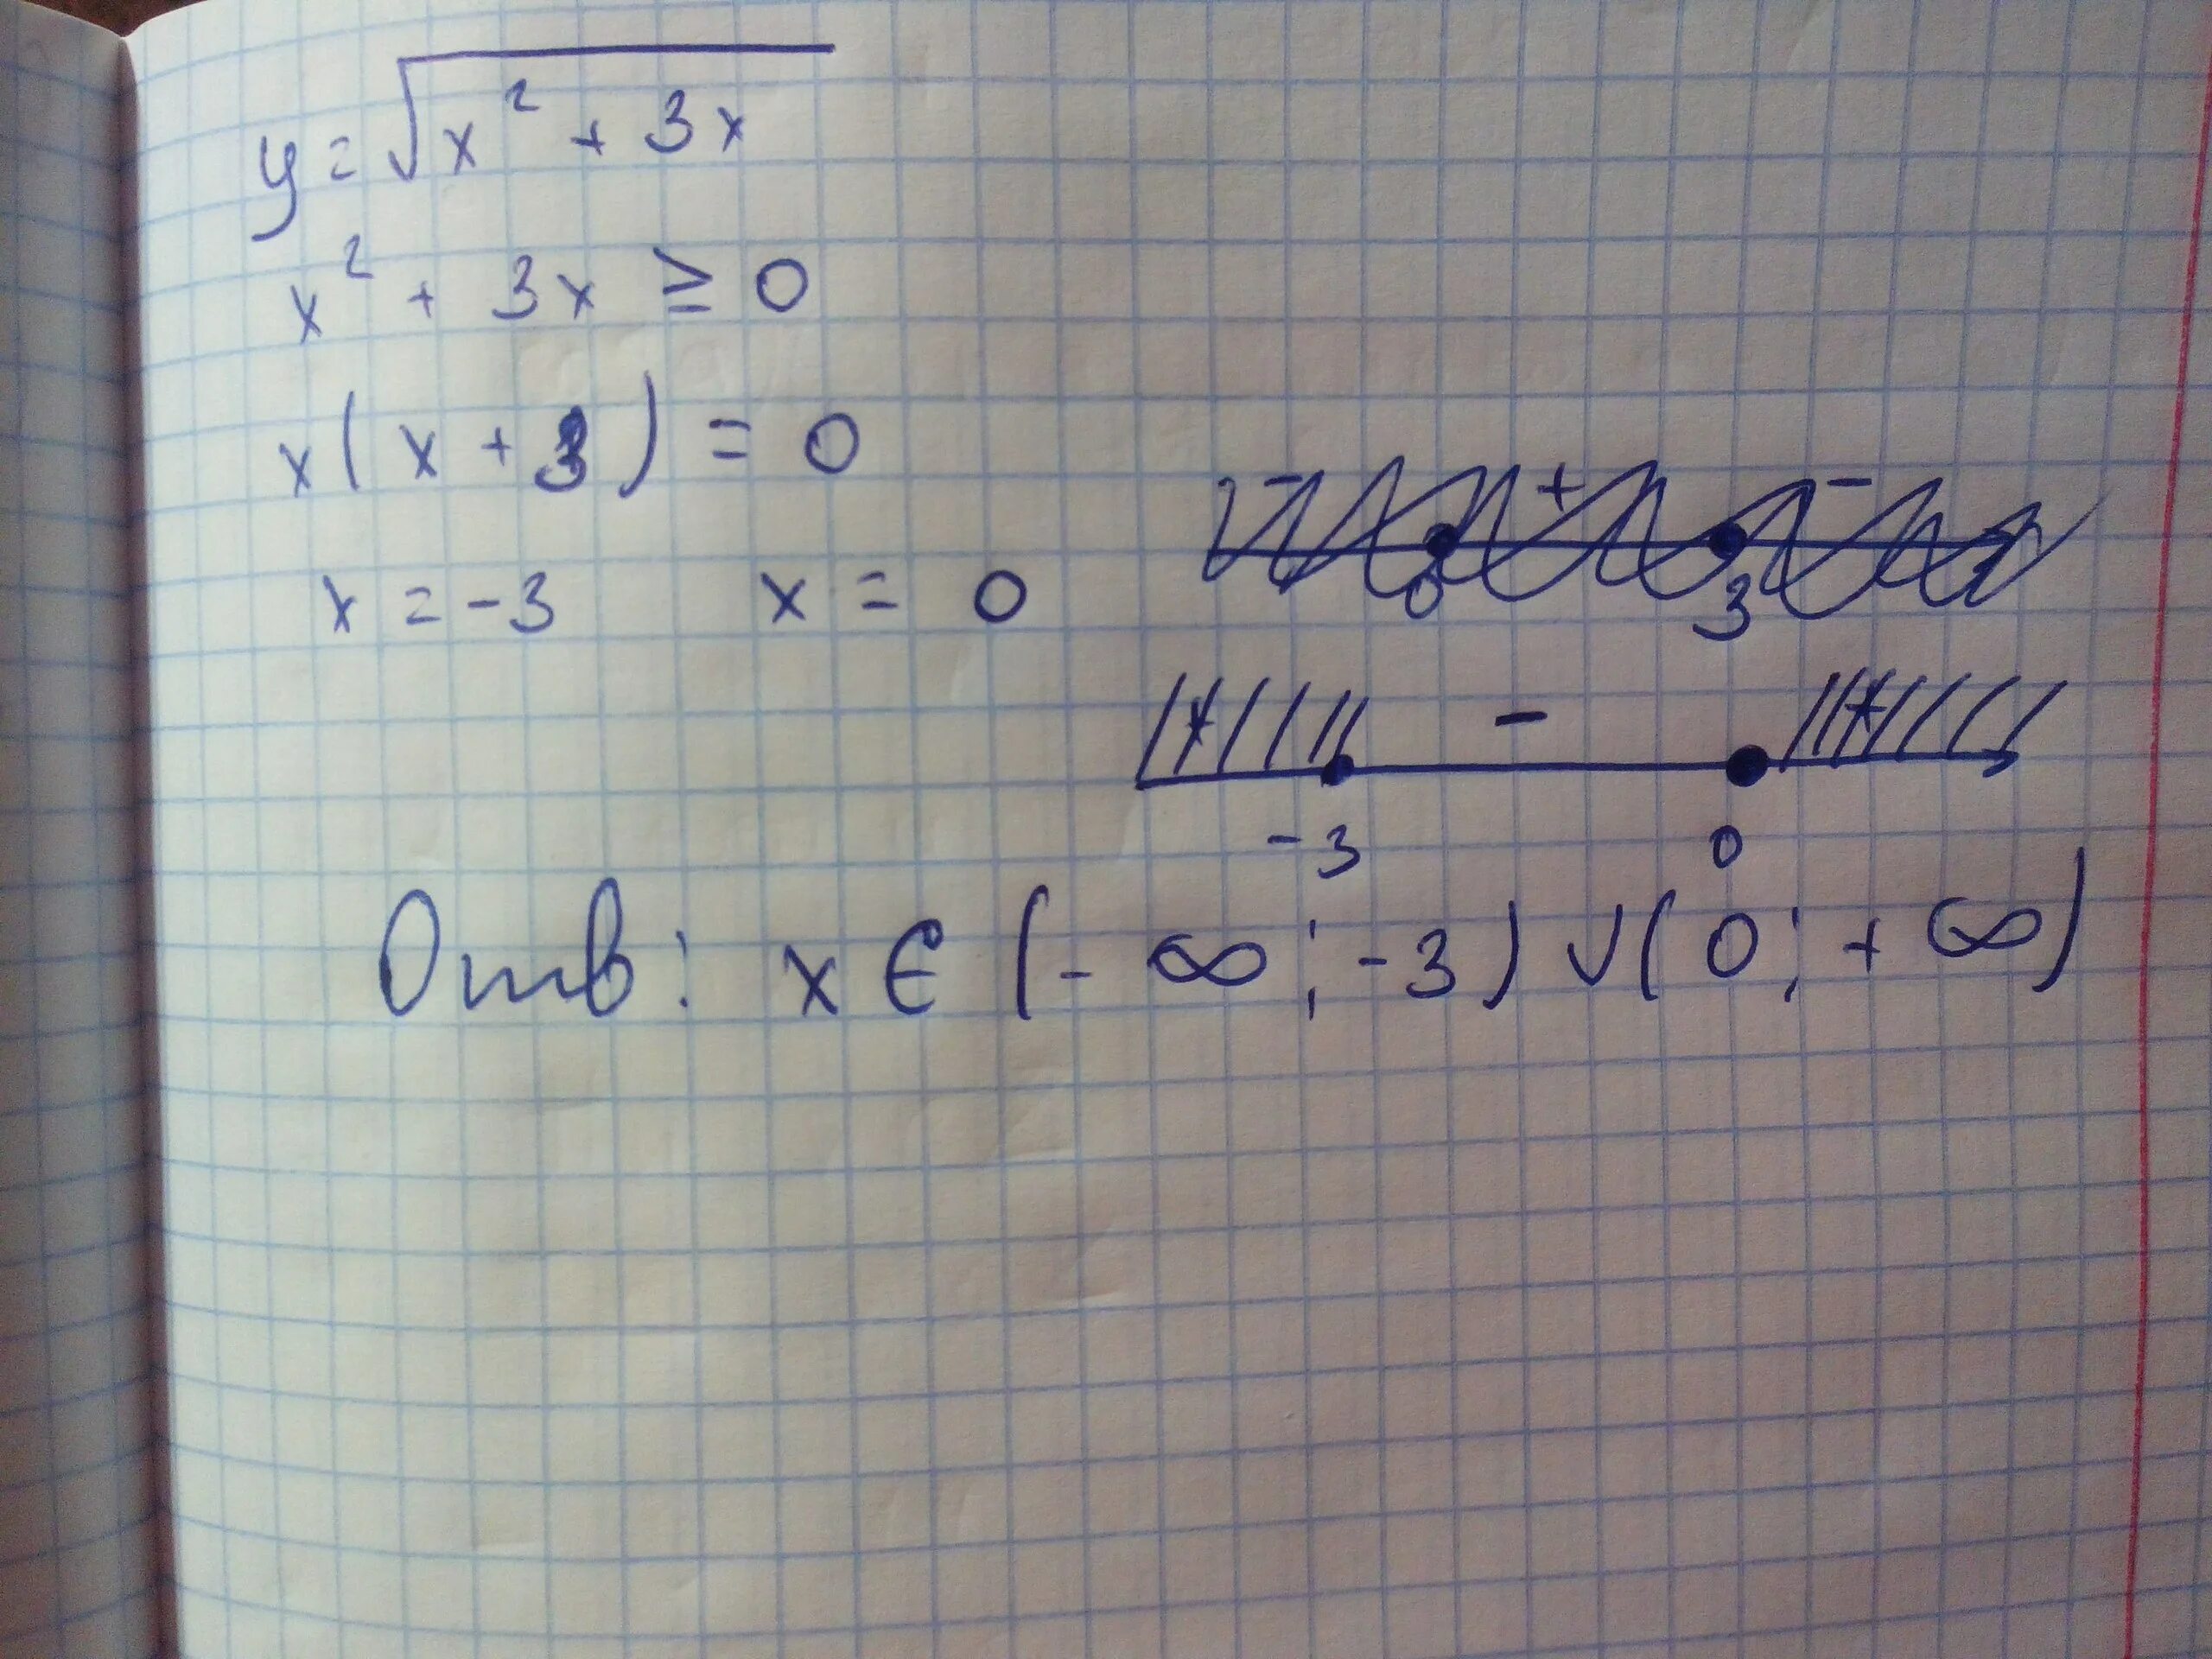 y = √x² + 3x
x² + 3x ≥ 0
x(x + 3) = 0
x = -3 x = 0
- + -
0 3
+ - +
-3 0
Отв: x ∈ (- ∞; -3) ∨ (0; + ∞)